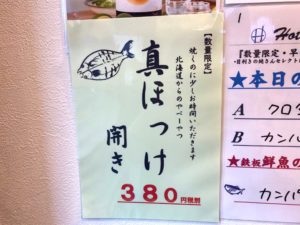 【数量限定】
焼くのに少しお時間いただきます
北海道からのやべーやつ
真ほっけ
開き
380円税別
1
Hot
『数量限定・早
★本日の
A クロ
B カンパ
★鉄板鮮魚の
カンパ